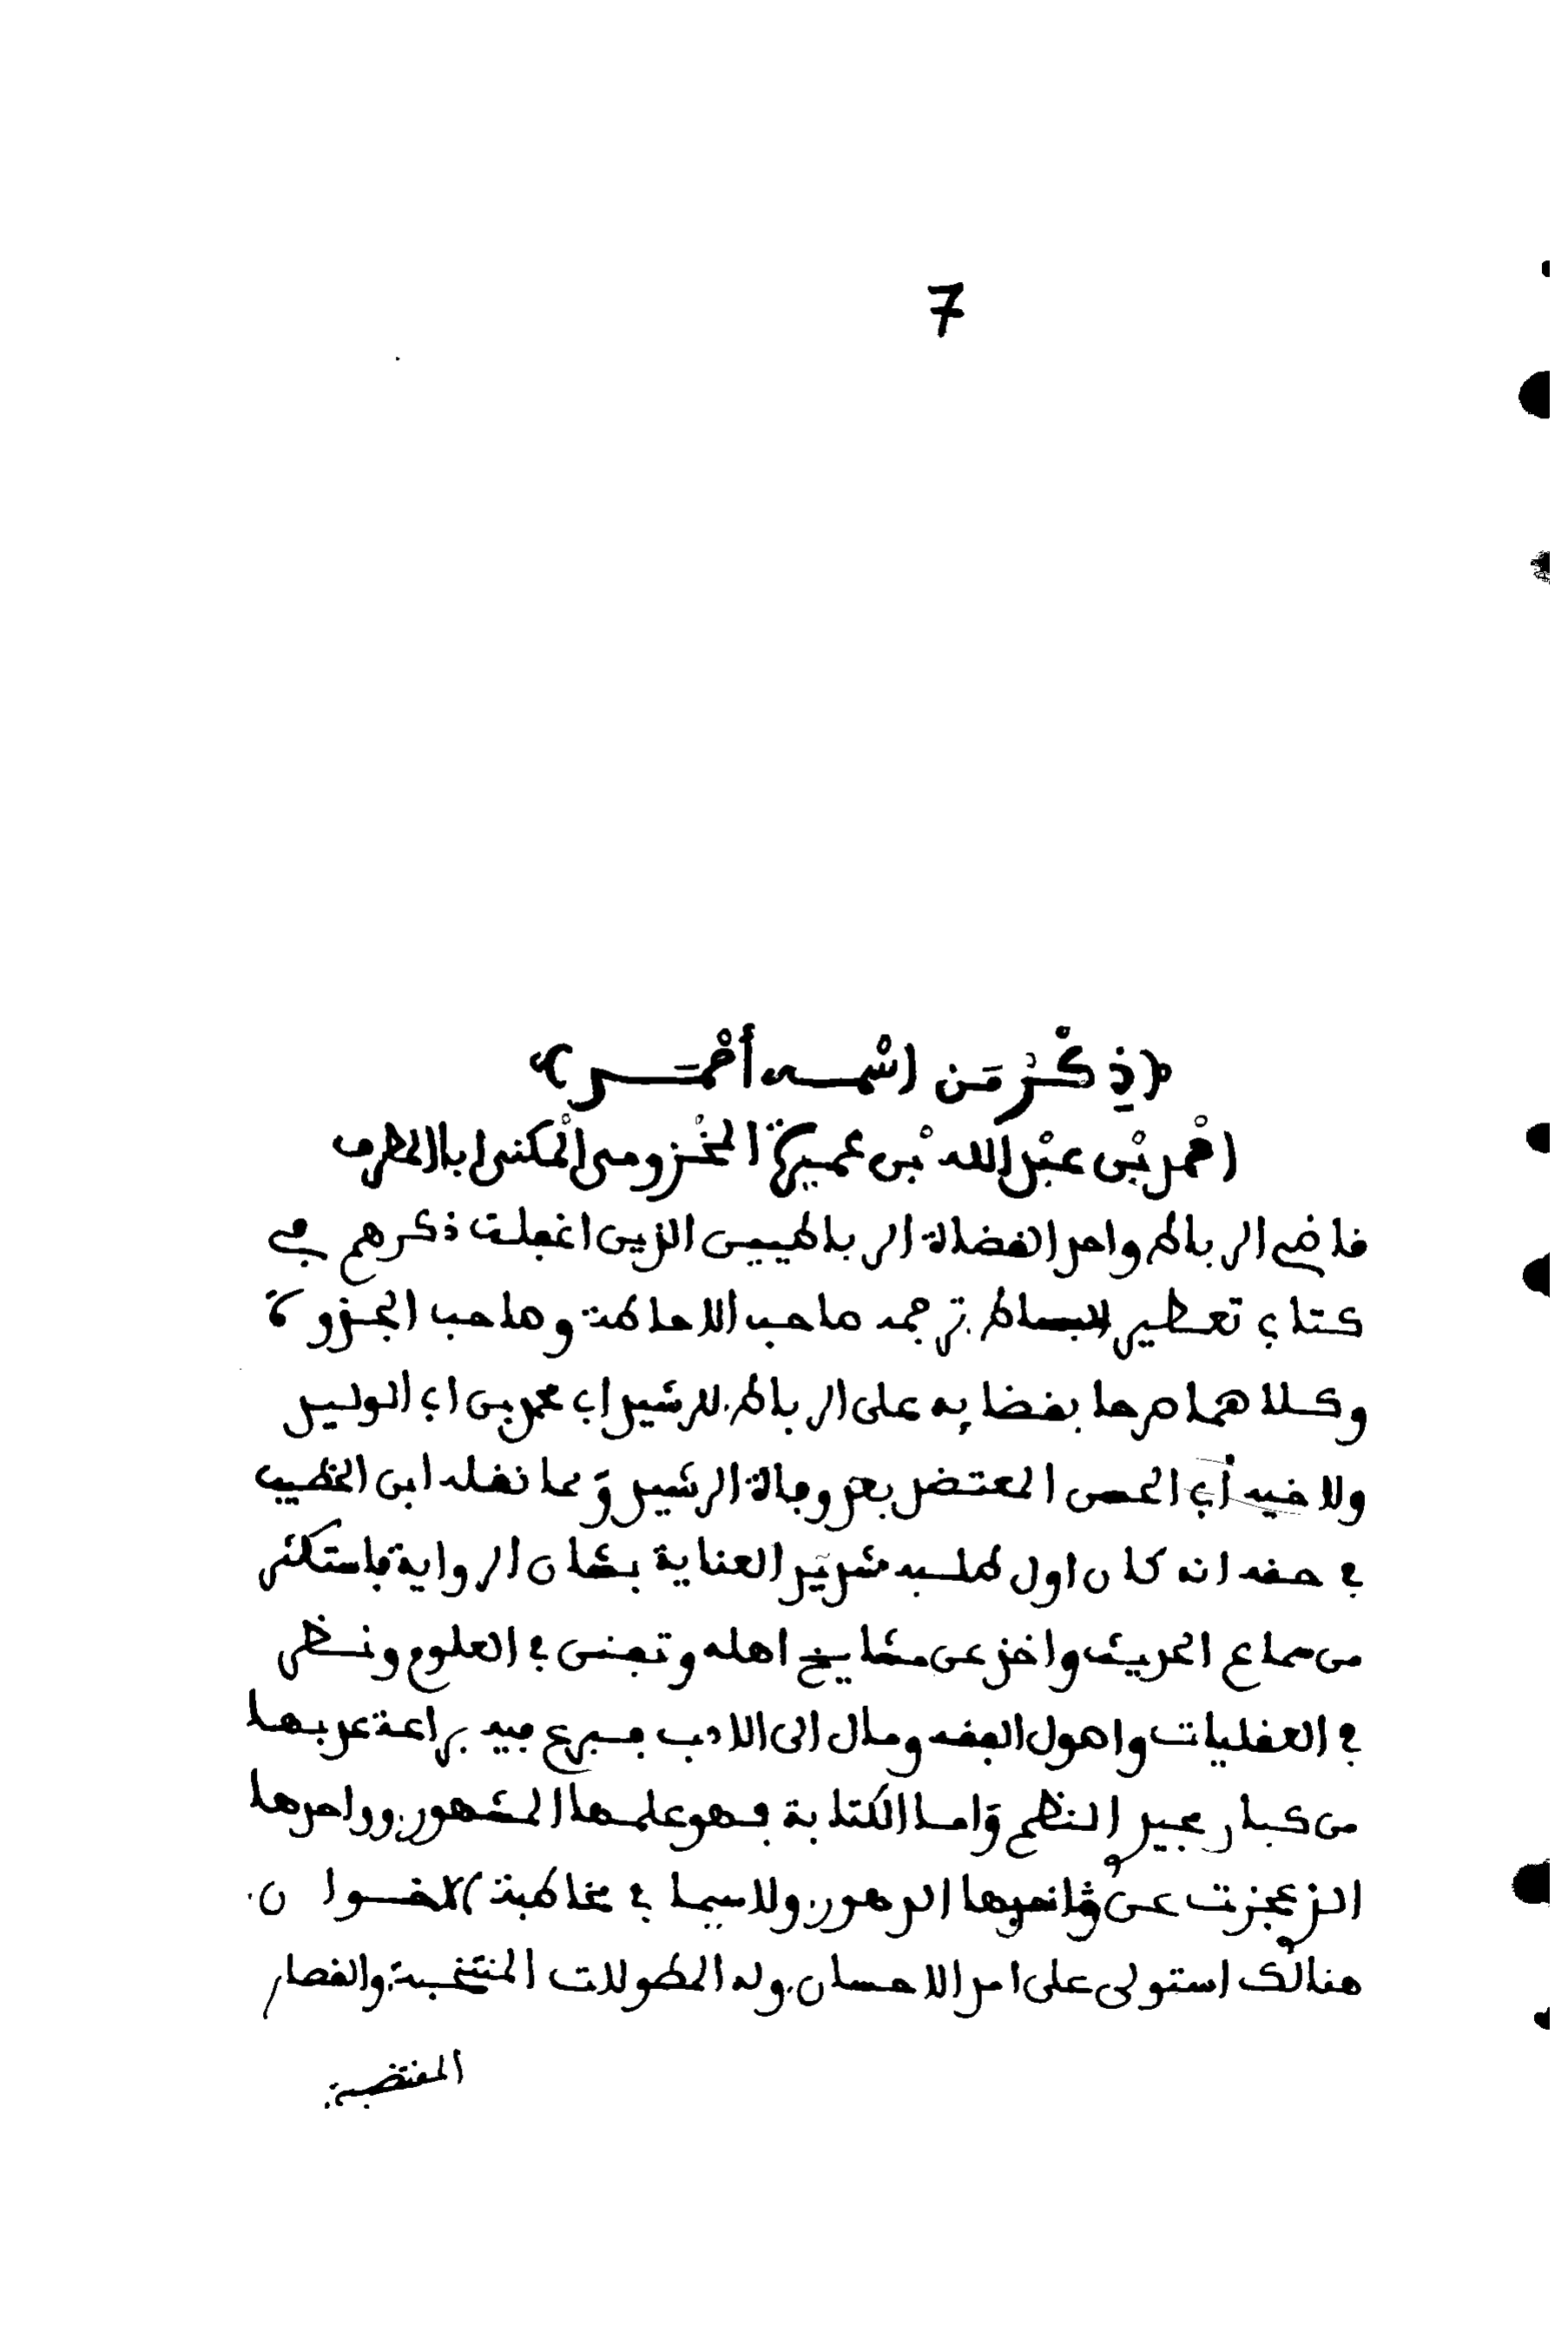 7
﴿ذِكْرُ مَن اسْمه أحْمَد﴾
احْمد بْن عبْد الله بْن عميرة المخْزومى الْمكنى ابا المطرف
قاضى الرباط واحد القضاة الرباطيين الذين اغفلت ذكرهم في
كتابي تعطير البساط. ترجمه صاحب الاحاطة وصاحب الجذوة
وكلاهما صرحا بقضايه على الرباط. للرشيد ابي محمد بن ابي الوليد
ولاخيه أبي الحسن المعتضد بعد وفاة الرشيد وَمما نقله ابن الخطيب
في حقه انه كان اول طلبه شديد العناية بشان الرواية فاستكثر
من سماع الحديث واخذ عن مشايخ اهله وتفنن في العلوم ونظر
في العقليات واصول الفقه ومال الى الادب فبرع فيه براعة عد بها
من كبار مجيدي النظم وَاما الكتابة فهو علمها المشهور. وواحدها
الذى عجزت عن ثانيها الدهور. ولاسيما في مخاطبة الاخوان.
هنالك استولى على امد الاحسان. وله المطولات المنتخبة. والقصار
المقتضبة.